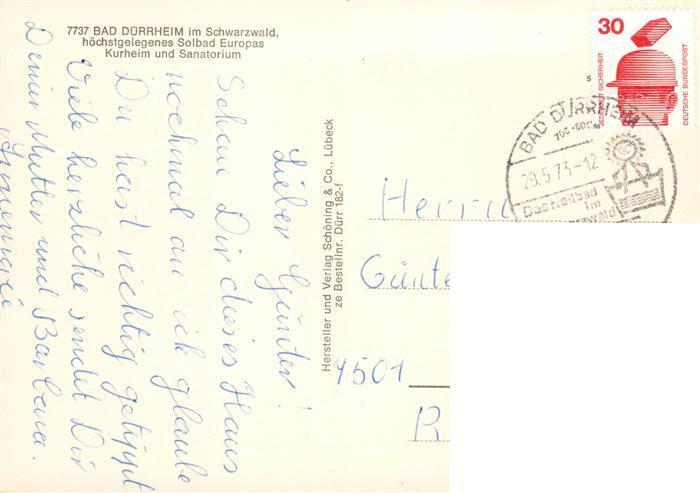 7737 BAD DÜRRHEIM im Schwarzwald,
höchstgelegenes Solbad Europas
Kurheim und Sanatorium
Lieber Günter!
Schau Dir dieses Haus
nochmal an ich glaube
Du hast richtig getippt
Viele herzliche sendet Dir
Deine Mutter und Barbara.
Annemarie
Hersteller und Verlag Schöning & Co., Lübeck
ze Bestellnr. Dürr 182-f
30
JEDERZEIT SICHERHEIT
DEUTSCHE BUNDESPOST
s
BAD DÜRRHEIM
29.5.73-12
Das Heilbad
im
Herrn
Günte
4501